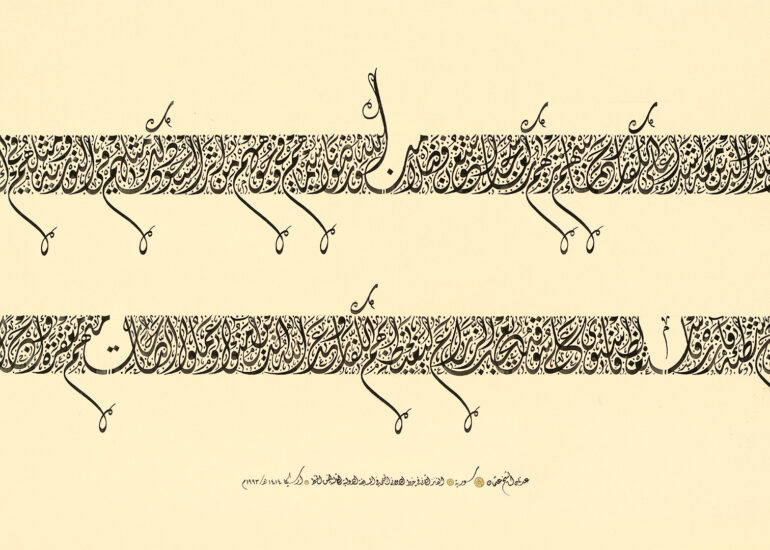 والذين معه أشداء على الكفار رحماء بينهم تراهم ركعا سجدا يبتغون فضلا من الله ورضوانا سيماهم في وجوههم من أثر السجود ذلك مثلهم في التوراة ومثلهم في
شطأه فآزره فاستغلظ فاستوى على سوقه يعجب الزراع ليغيظ بهم الكفار وعد الله الذين آمنوا وعملوا الصالحات منهم مغفرة وأجرا
عدنان الشيخ عثمان سورية ارسيكا ١٤١٤هـ/١٩٩٣م